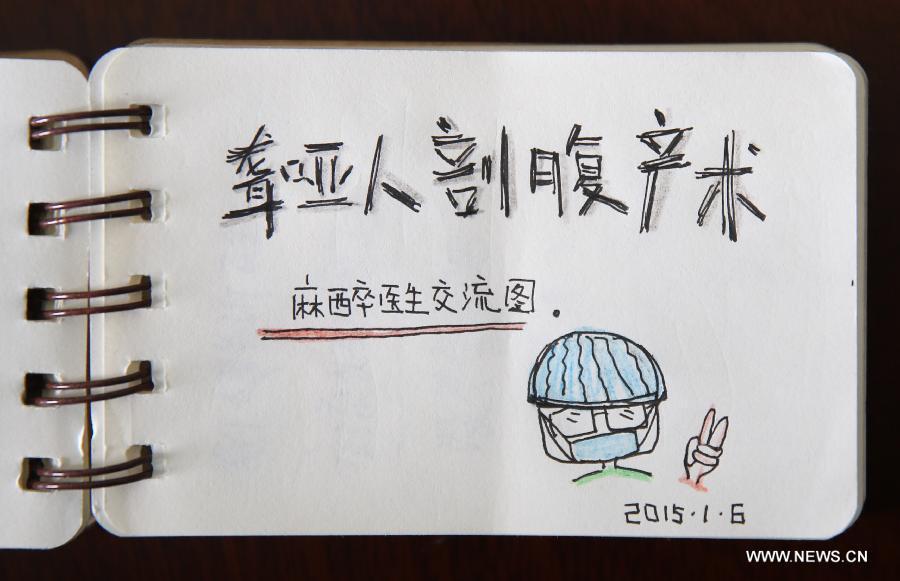 聋哑人剖腹产术
麻醉医生交流图.
2015·1·6
WWW.NEWS.CN